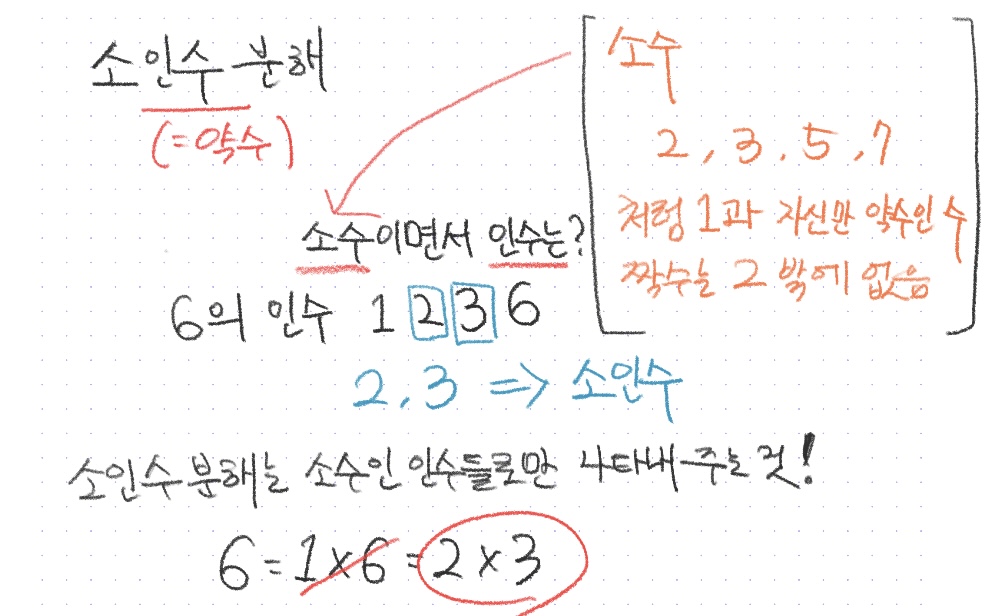 소인수 분해
(=약수)
소수
2, 3, 5, 7
처럼 1과 자신만 약수인 수
짝수는 2 밖에 없음
소수이면서 인수는?
6의 인수 1 2 3 6
2, 3 => 소인수
소인수 분해는 소수인 인수들로만 나타내 주는 것!
6 = 1×6 = 2×3